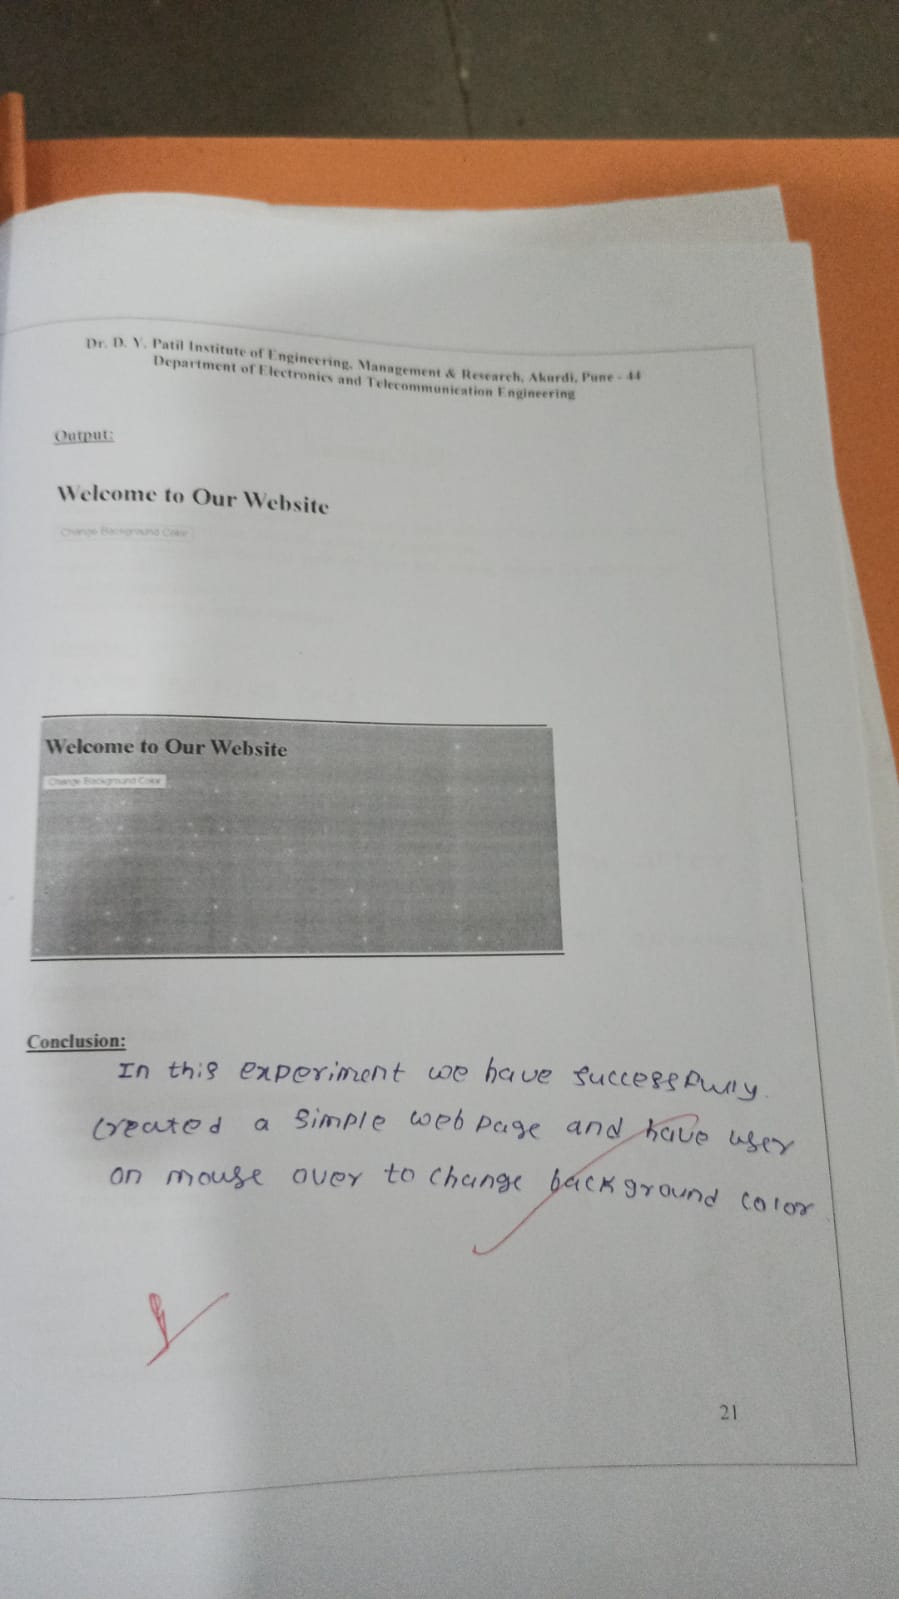 Dr. D. Y. Patil Institute of Engineering, Management & Research, Akurdi, Pune - 44
Department of Electronics and Telecommunication Engineering
Output:
Welcome to Our Website
Change Background Color
Welcome to Our Website
Change Background Color
Conclusion:
In this experiment we have successfully
created a simple web page and have user
on mouse over to change background color.
21